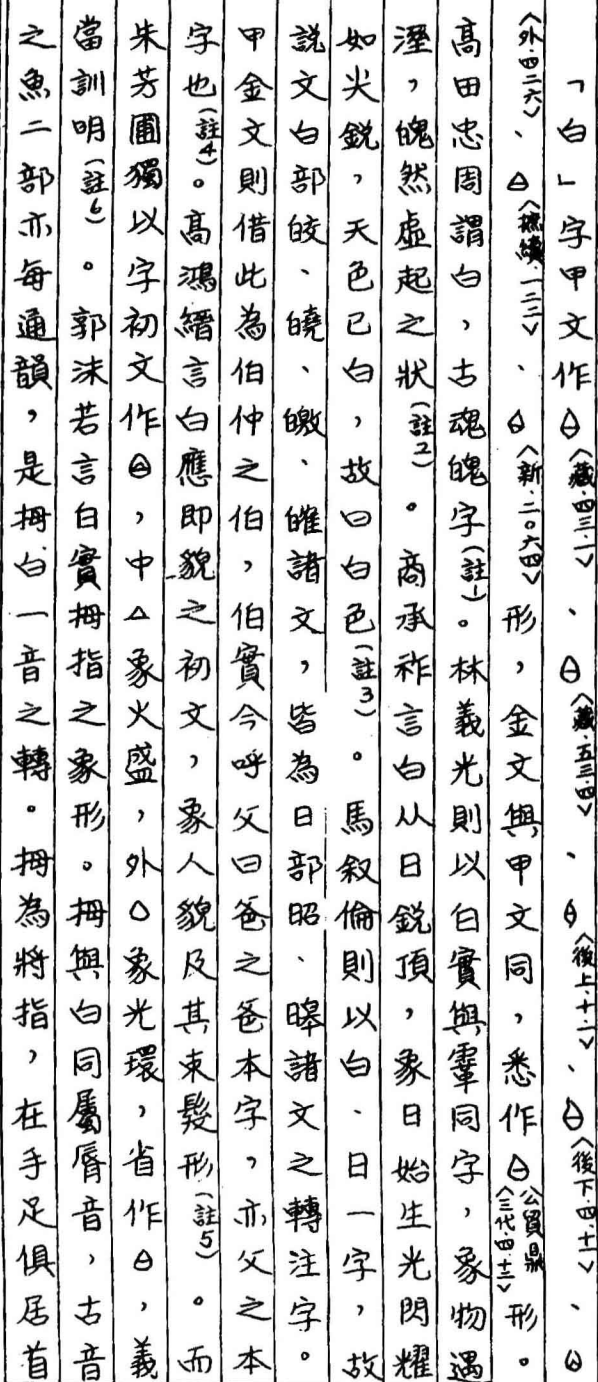 「白」字甲文作〈藏·四三·一〉、〈藏·五三·四〉、〈後上·十二〉、〈後下·四·十一〉、
〈外·四二六〉、〈摭續·一二二〉、〈新·二〇六四〉形，金文與甲文同，悉作〈公貿鼎 三代·四·十二〉形。
高田忠周謂白，古魂魄字(註1)。林義光則以白實與䨣同字，象物遇
溼，魄然虛起之狀(註2)。商承祚言白从日銳頂，象日始生光閃耀
如尖銳，天色已白，故曰白色(註3)。馬叙倫則以白、日一字，故
説文白部皎、曉、皦、皠諸文，皆為日部昭、皞諸文之轉注字。
甲金文則借此為伯仲之伯，伯實今呼父曰爸之爸本字，亦父之本
字也(註4)。高鴻縉言白應即貌之初文，象人貌及其束髮形(註5)。而
朱芳圃獨以字初文作，中△象火盛，外○象光環，省作，義
當訓明(註6)。郭沫若言白實拇指之象形。拇與白同屬脣音，古音
之魚二部亦每通韻，是拇白一音之轉。拇為將指，在手足俱居首